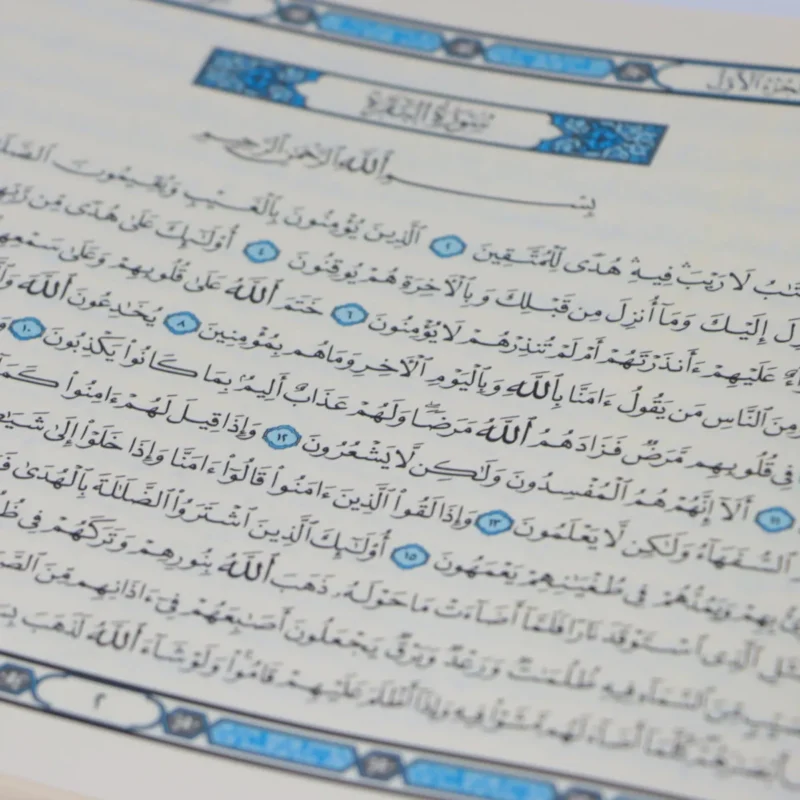 الجزء الأول
سورة البقرة
بِسْمِ ٱللَّهِ ٱلرَّحْمَٰنِ ٱلرَّحِيمِ
لَا رَيْبَ ۛ فِيهِ ۛ هُدًى لِّلْمُتَّقِينَ ٢ ٱلَّذِينَ يُؤْمِنُونَ بِٱلْغَيْبِ وَيُقِيمُونَ
إِلَيْكَ وَمَآ أُنزِلَ مِن قَبْلِكَ وَبِٱلْءَاخِرَةِ هُمْ يُوقِنُونَ ٤ أُو۟لَٰٓئِكَ عَلَىٰ هُدًى مِّن
عَلَيْهِمْ ءَأَنذَرْتَهُمْ أَمْ لَمْ تُنذِرْهُمْ لَا يُؤْمِنُونَ ٦ خَتَمَ ٱللَّهُ عَلَىٰ قُلُوبِهِمْ وَعَلَىٰ
مِنَ ٱلنَّاسِ مَن يَقُولُ ءَامَنَّا بِٱللَّهِ وَبِٱلْيَوْمِ ٱلْءَاخِرِ وَمَا هُم بِمُؤْمِنِينَ ٨ يُخَٰدِعُونَ ٱللَّهَ
فِى قُلُوبِهِم مَّرَضٌ فَزَادَهُمُ ٱللَّهُ مَرَضًا ۖ وَلَهُمْ عَذَابٌ أَلِيمٌۢ بِمَا كَانُوا۟ يَكْذِبُونَ ١٠
١١ أَلَآ إِنَّهُمْ هُمُ ٱلْمُفْسِدُونَ وَلَٰكِن لَّا يَشْعُرُونَ ١٢ وَإِذَا قِيلَ لَهُمْ ءَامِنُوا۟
ٱلسُّفَهَآءُ وَلَٰكِن لَّا يَعْلَمُونَ ١٣ وَإِذَا لَقُوا۟ ٱلَّذِينَ ءَامَنُوا۟ قَالُوٓا۟ ءَامَنَّا وَإِذَا خَلَوْا۟ إِلَىٰ
بِهِمْ وَيَمُدُّهُمْ فِى طُغْيَٰنِهِمْ يَعْمَهُونَ ١٥ أُو۟لَٰٓئِكَ ٱلَّذِينَ ٱشْتَرَوُا۟ ٱلضَّلَٰلَةَ بِٱلْهُدَىٰ
ٱلَّذِى ٱسْتَوْقَدَ نَارًا فَلَمَّآ أَضَآءَتْ مَا حَوْلَهُۥ ذَهَبَ ٱللَّهُ بِنُورِهِمْ وَتَرَكَهُمْ فِى
مِّنَ ٱلسَّمَآءِ فِيهِ ظُلُمَٰتٌ وَرَعْدٌ وَبَرْقٌ يَجْعَلُونَ أَصَٰبِعَهُمْ فِىٓ ءَاذَانِهِم مِّنَ
كُلَّمَآ أَضَآءَ لَهُم مَّشَوْا۟ فِيهِ وَإِذَآ أَظْلَمَ عَلَيْهِمْ قَامُوا۟ ۚ وَلَوْ شَآءَ ٱللَّهُ لَذَهَبَ
٢